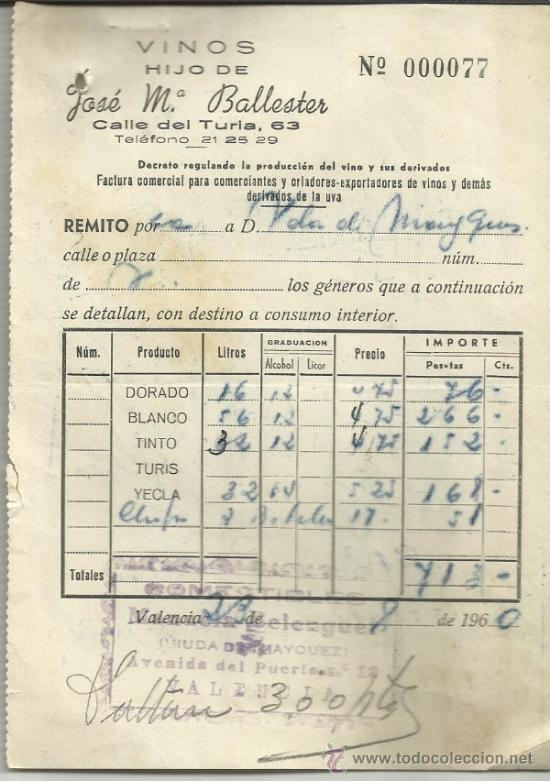 VINOS
HIJO DE
José Mª Ballester
Calle del Turia, 63
Teléfono 21 25 29
Nº 000077
Decreto regulando la producción del vino y sus derivados
Factura comercial para comerciantes y criadores-exportadores de vinos y demás
derivados de la uva
REMITO por a D. Vda de
calle o plaza núm.
de los géneros que a continuación
se detallan, con destino a consumo interior.
Núm. Producto Litros GRADUACION Alcohol Licor Precio IMPORTE Pesetas Cts.
DORADO 16 12 4 75 76 -
BLANCO 56 12 4,75 266 -
TINTO 32 12 4,75 152 -
TURIS
YECLA 32 5 25 168 -
3 17 - 51
Totales 713 -
COMESTIBLES
Valencia 23 de 8 de 1960
Belenguer
(VIUDA DE MAYQUEZ)
Avenida del Puerto
VALENCIA
Faltan 300 pts
www.todocoleccion.net